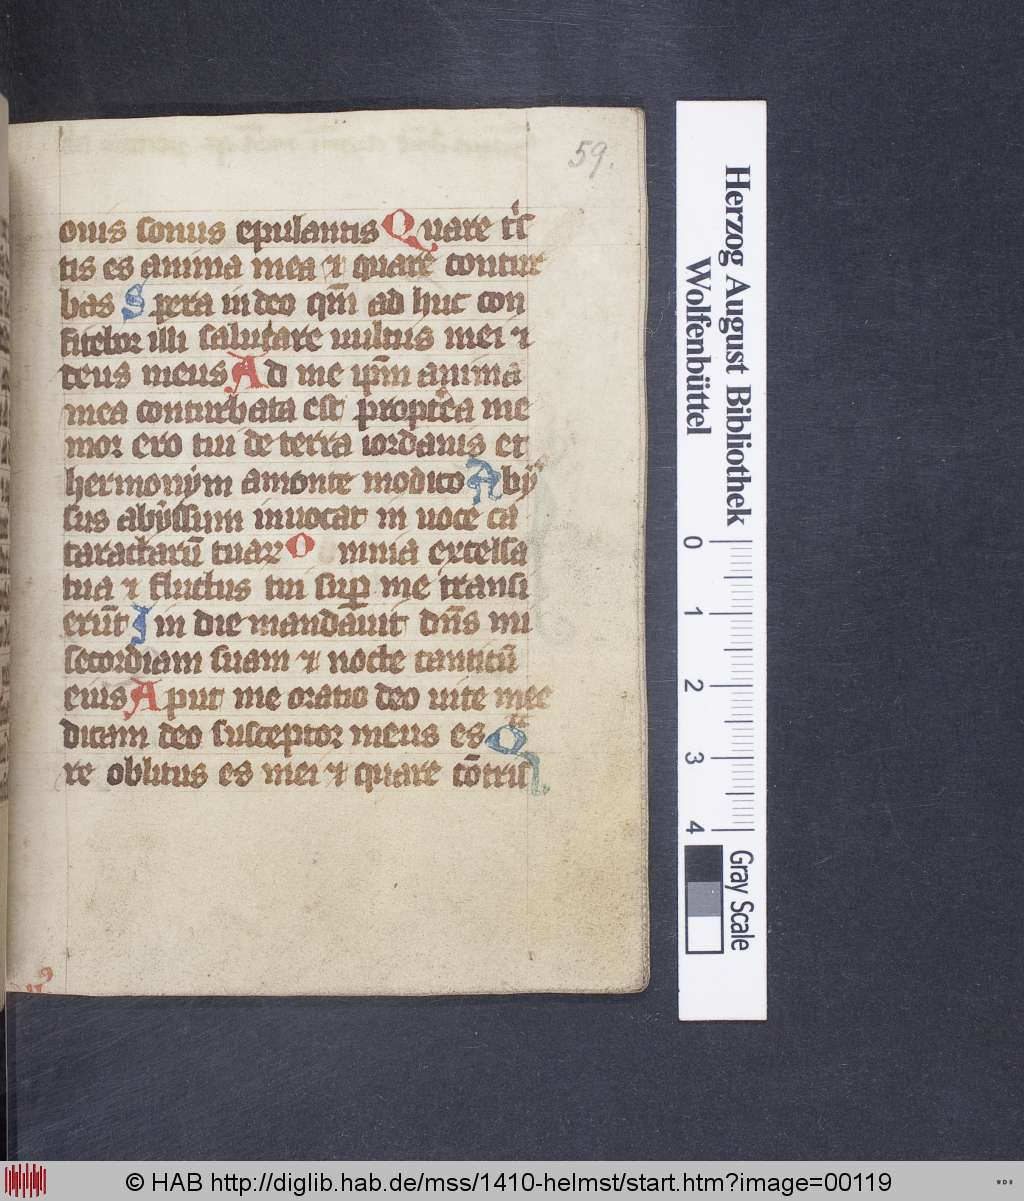 59.
onis sonus epulantis Quare t's
tis es anima mea ⁊ quare contur
bas Spera in deo qm̄ ad huc con
fitebor illi salutare uultus mei ⁊
deus meus Ad me ip̄m anima
mea conturbata est propt'ea me
mor ero tui de terra iordanis et
hermonÿm amonte modico Abÿ
sus abÿssum inuocat in uoce ca
taractarū tuar Omnia excelsa
tua ⁊ fluctus tui sup̄ me transi
erūt In die mandauit dn̄s mi
secordiam suam ⁊ nocte canticū
eius Aput me oratio deo uite mee
dicam deo susceptor meus es Qᷓ
re oblitus es mei ⁊ quare cōtris
Herzog August Bibliothek
Wolfenbüttel
0 1 2 3 4
Gray Scale
© HAB http://diglib.hab.de/mss/1410-helmst/start.htm?image=00119